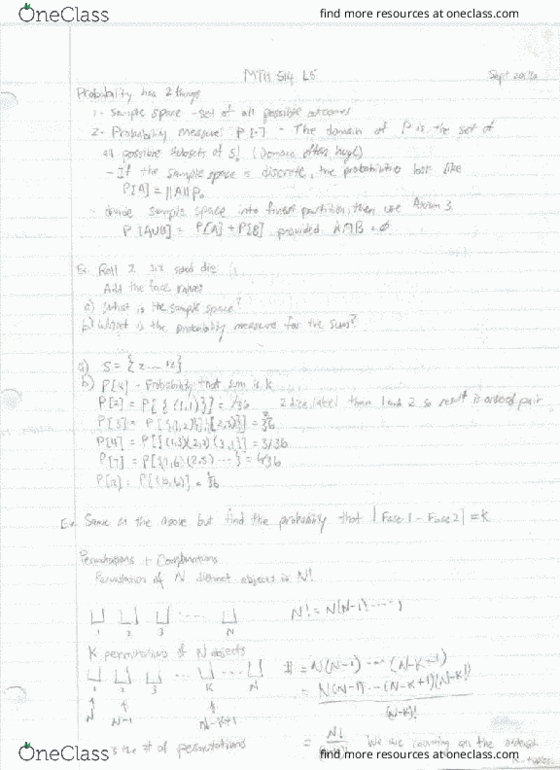 OneClass
find more resources at oneclass.com
MTH 514 L5
Probability has 2 things
1- Sample space - set of all possible outcomes
2- Probability measure P[·] - The domain of P is the set of
all possible subsets of S! (Domain often huge)
- If the sample space is discrete, the probabilities look like
P[A] = ||A||P₀
- divide sample space into finer partition, then use Axiom 3.
P[A∪B] = P[A] + P[B] provided A∩B = ∅
Ex. Roll 2 six sided die
Add the face values
a) What is the sample space?
b) What is the probability measure for the sum?
a) S = {2 .... 12}
b) P[k] - Probability that sum is k
P[2] = P[{(1,1)}] = 1/36 2 dice, label them 1 and 2 so result is ordered pair
P[3] = 2/36
P[4] = P[{(1,3)(2,2)(3,1)}] = 3/36
P[7] = P[{(1,6)(2,5) ...}]
Ex. Same as the above but find the probability that |Face 1 - Face 2| = k
Permutations + Combinations
Permutation of N distinct objects is N!
1 2 3 N
N! = N(N-1) ..... 1
K permutations of N objects
# = N(N-1) ... (N-K+1)
1 2 3 K N
= N(N-1) ... (N-K+1)(N-K)!
(N-K)!
N N-1 N-K+1
is the # of permutations
= N! We are counting on the
OneClass
find more resources at oneclass.com